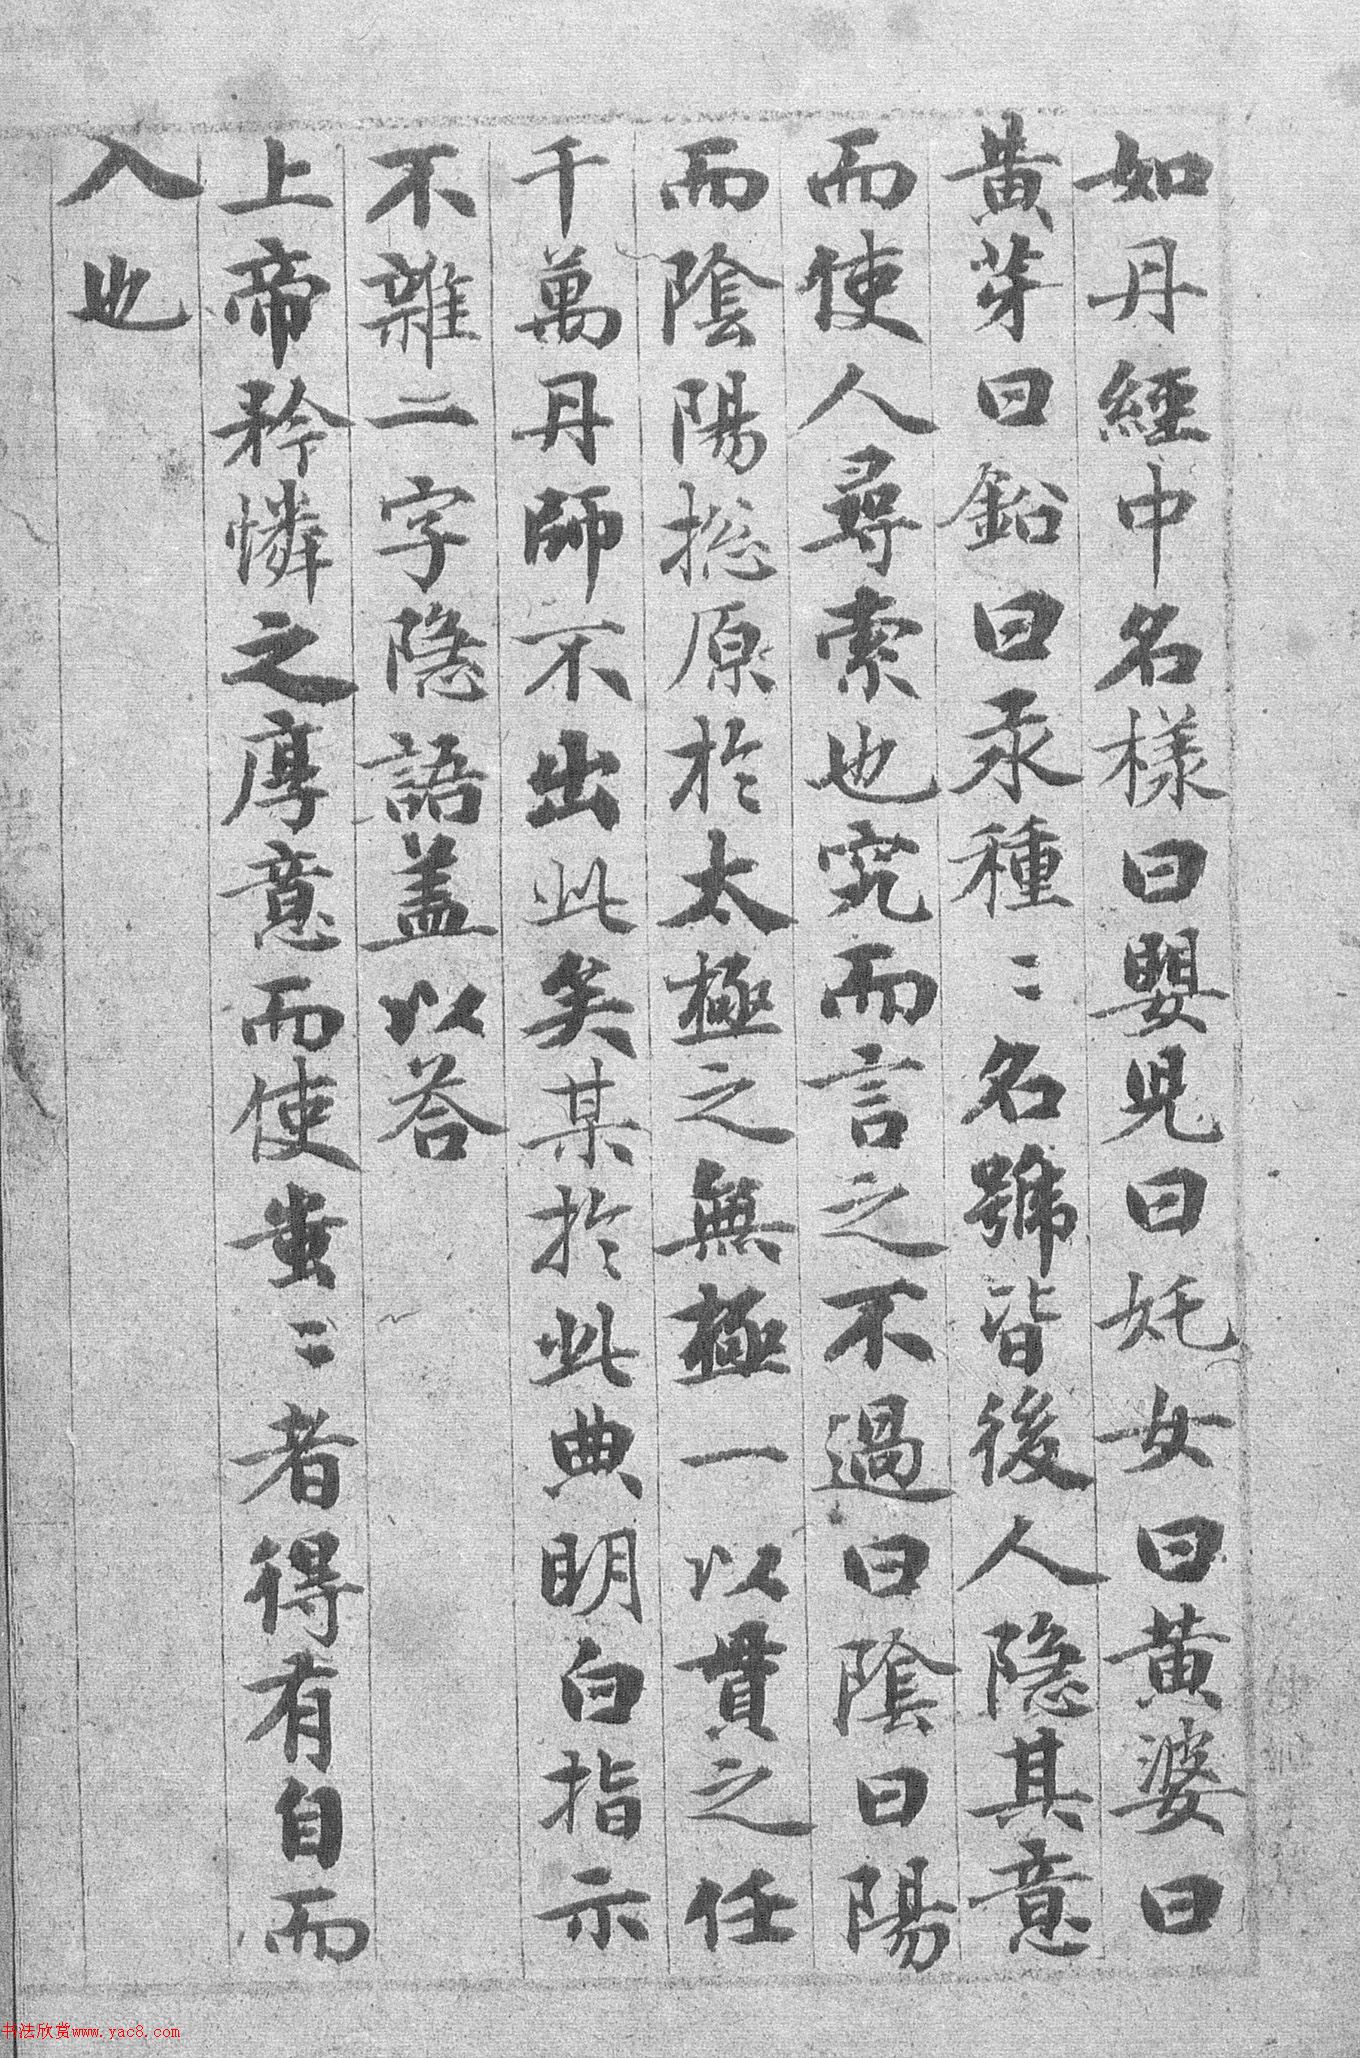 如丹經中名樣曰嬰児曰妊女曰黄婆曰
黄芽曰鉛曰汞種〻名號皆後人隐其意
而使人尋索也究而言之不過曰隂曰陽
而陰陽揔原於太極之無極一以貫之任
千萬丹師不出此矣某於此典明白指示
不雜一字隐語盖以荅
上帝矜憐之厚意而使蚩〻者得有自而
入也
书法欣赏www.yac8.com